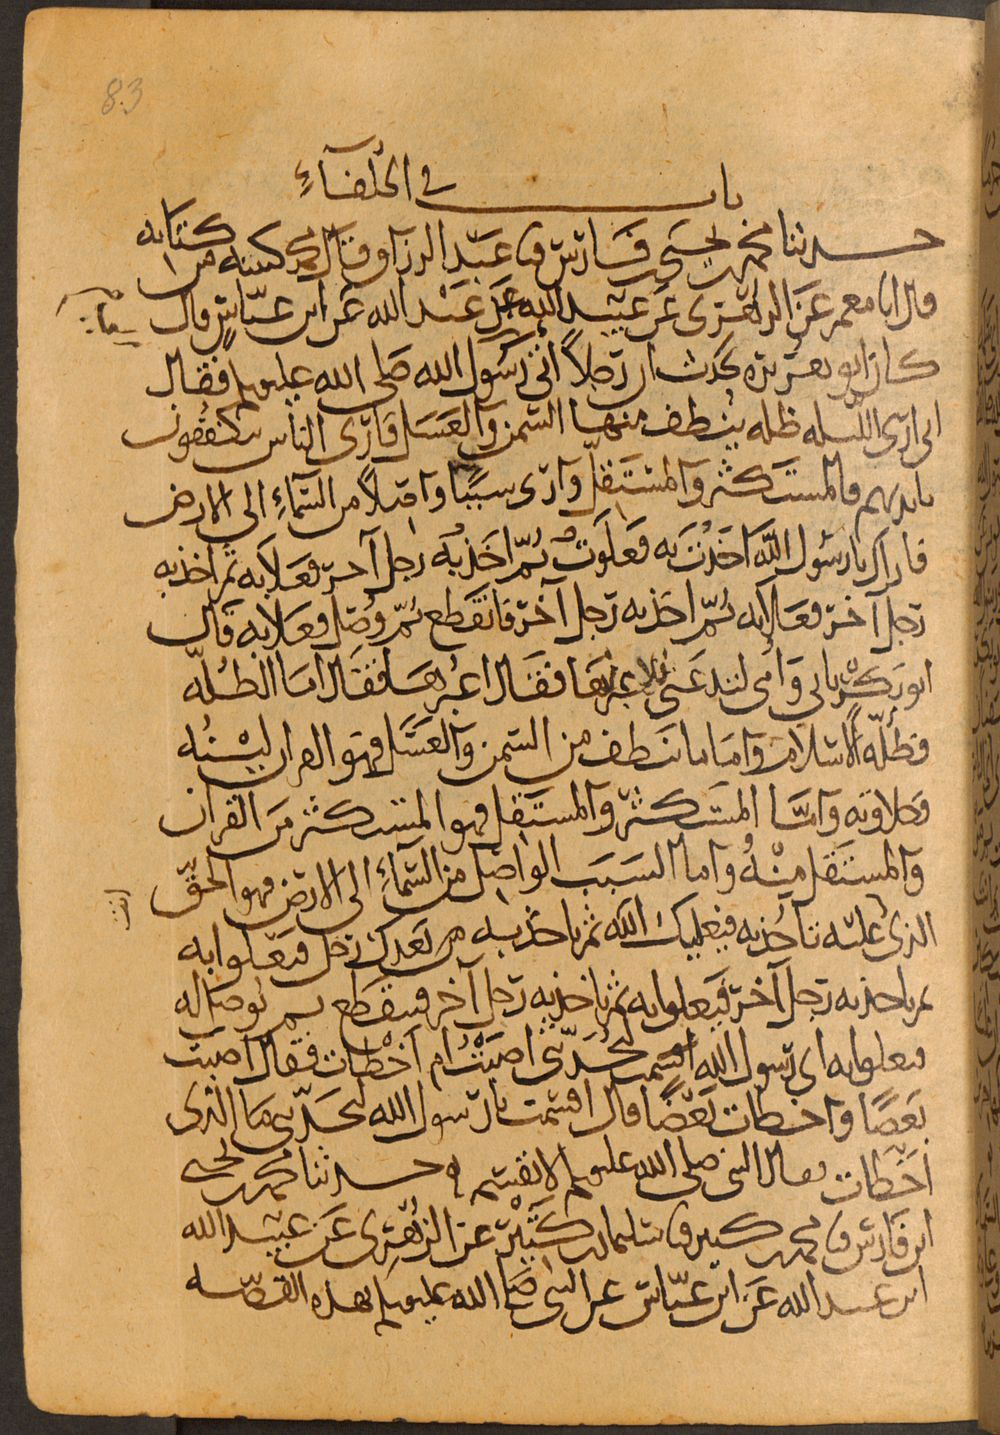 83
باب في الخلفاء
حدثنا محمد بن يحيى بن فارس نا عبد الرزاق قال محمد كتبته من كتابه
قال انا معمر عن الزهري عن عبيد الله بن عبد الله عن ابن عباس قال
كان ابو هريرة يحدث ان رجلا اتى رسول الله صلى الله عليه وسلم فقال
اني ارى الليلة ظلة ينطف منها السمن والعسل فارى الناس يتكففون
بايديهم فالمستكثر والمستقل وارى سببا واصلا من السماء الى الارض
فاراك يا رسول الله اخذت به فعلوت به ثم اخذ به رجل آخر فعلا به ثم اخذ به
رجل آخر فعلا به ثم اخذ به رجل آخر فانقطع ثم وصل فعلا به قال
ابو بكر بابي وامي لتدعني فلاعبرنها فقال اعبرها فقال اما الظلة
فظلة الاسلام واما ما ينطف من السمن والعسل فهو القران لينه
وحلاوته واما المستكثر والمستقل فهو المستكثر من القرآن
والمستقل منه واما السبب الواصل من السماء الى الارض فهو الحق
الذي عليه تأخذ به فيعليك الله ثم ياخذ به من بعدك رجل فيعلوا به
ثم ياخذ به رجل آخر فيعلوا به ثم ياخذ به رجل آخر فينقطع ثم يوصل له
فيعلوا به اي رسول الله اقسمت لتحدثني اصبت ام اخطات فقال اصبت
بعضا واخطات بعضا قال اقسمت يا رسول الله لتحدثني ما الذي
اخطات فقال النبي صلى الله عليه وسلم لا تقسم حدثنا محمد بن يحيى
ابن فارس نا محمد بن كثير نا سليمان بن كثير عن الزهري عن عبيد الله
ابن عبد الله عن ابن عباس عن النبي صلى الله عليه وسلم بهذه القصة